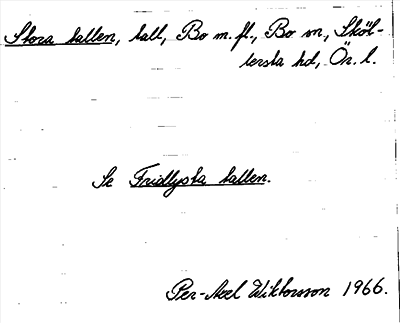 Stora tallen, tall, Bo m. fl., Bo sn, Sköl-
lersta hd, Ör. l.
Se Fridlysta tallen.
Per-Axel Wiktorsson 1966.